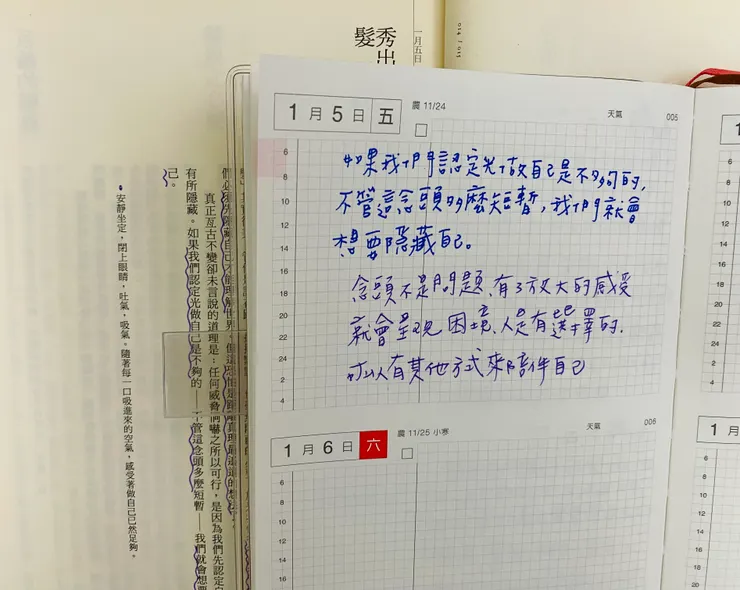 秀出
髮
一月五日
014 / 015
1月5日 五
農 11/24
天氣
005
如果我們認定光做自己是不夠的,
不管這念頭多麼短暫,我們就會
想要隱藏自己。
念頭不是問題、有了放大的感受
就會呈現困境、人是有選擇的.
可以有其他方式來陪伴自己
6
8
10
12
14
16
18
20
22
24
2
4
1月6日 六
農 11/25 小寒
天氣
006
6
8
10
12
14
16
真正亙古不變卻未言說的道理是:任何威脅恫嚇之所以可行,是因為我們先認定自
有所隱藏。如果我們認定光做自己是不夠的——不管這念頭多麼短暫——我們就會想要
己。
安靜坐定,閉上眼睛,吐氣,吸氣。隨著每一口吸進來的空氣,感受著做自己已然足夠。